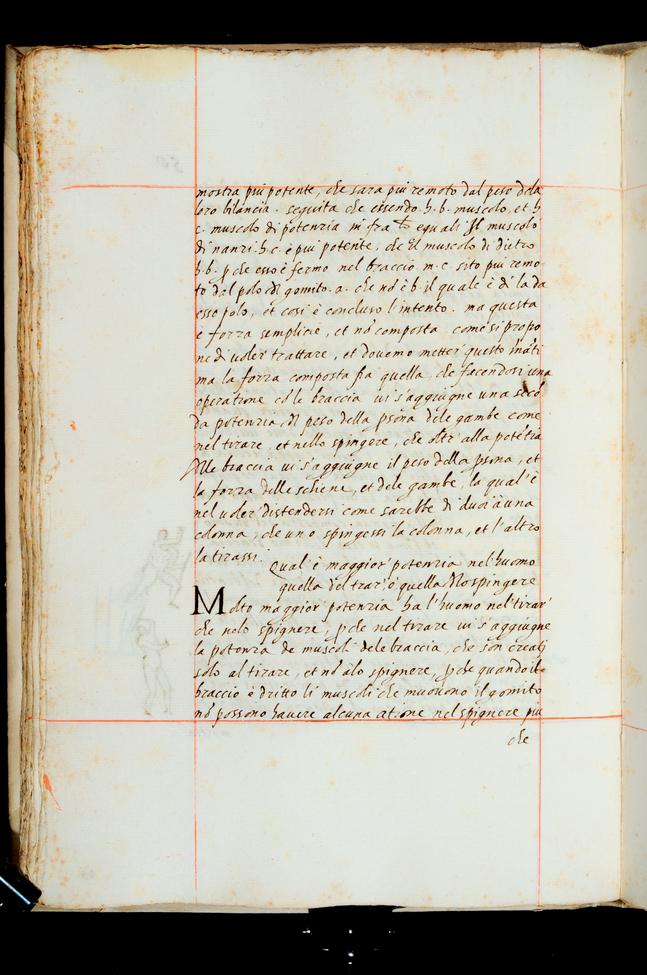 mostra piu potente, che sara piu remoto dal peso dela
loro bilancia. seguita che essendo .h.b. muscolo, et .h
c. muscolo di potenzia in fra lor equali Il muscolo
di nanzi .h.c. è piu potente, che El muscolo di dietro
h.b. p che esso è fermo nel braccio m.c sito piu remo-
to dal polo dl gomito .a. che nō è b. il quale è di la da
esso polo, et cosi è concluso l'intento. ma questa
è forza semplice, et nō composta come si propo
ne di voler trattare, et dovemo metter questo ināti
ma la forza composta fia quella, che facendosi una
operatione cō le braccia vi s'aggiugne una secō
da potenzia, dl peso della psona dele gambe come
nel tirare, et nello spingere, che oltr' alla potētia
Alle braccia vi s'aggiugne il peso della psona, et
la forza delle schiene, et dele gambe, la qual' è
nel voler distendersi come sarebbe di duoi à una
colonna, che uno spingessi la colonna, et l'altro
la tirassi.
Qual' è maggior potenzia nel huomo
quella del trar' ò quella dlo spingere
Molto maggior potenzia ha l'huomo nel tirar'
che nelo spignere, p che nel tirare vi s'aggiugne
la potenza de muscoli dele braccia, che son creati
solo al tirare, et nō àlo spignere, p che quando il
braccio è dritto li muscoli che muovono il gomito
nō possono havere alcuna atione nel spignere piu
che